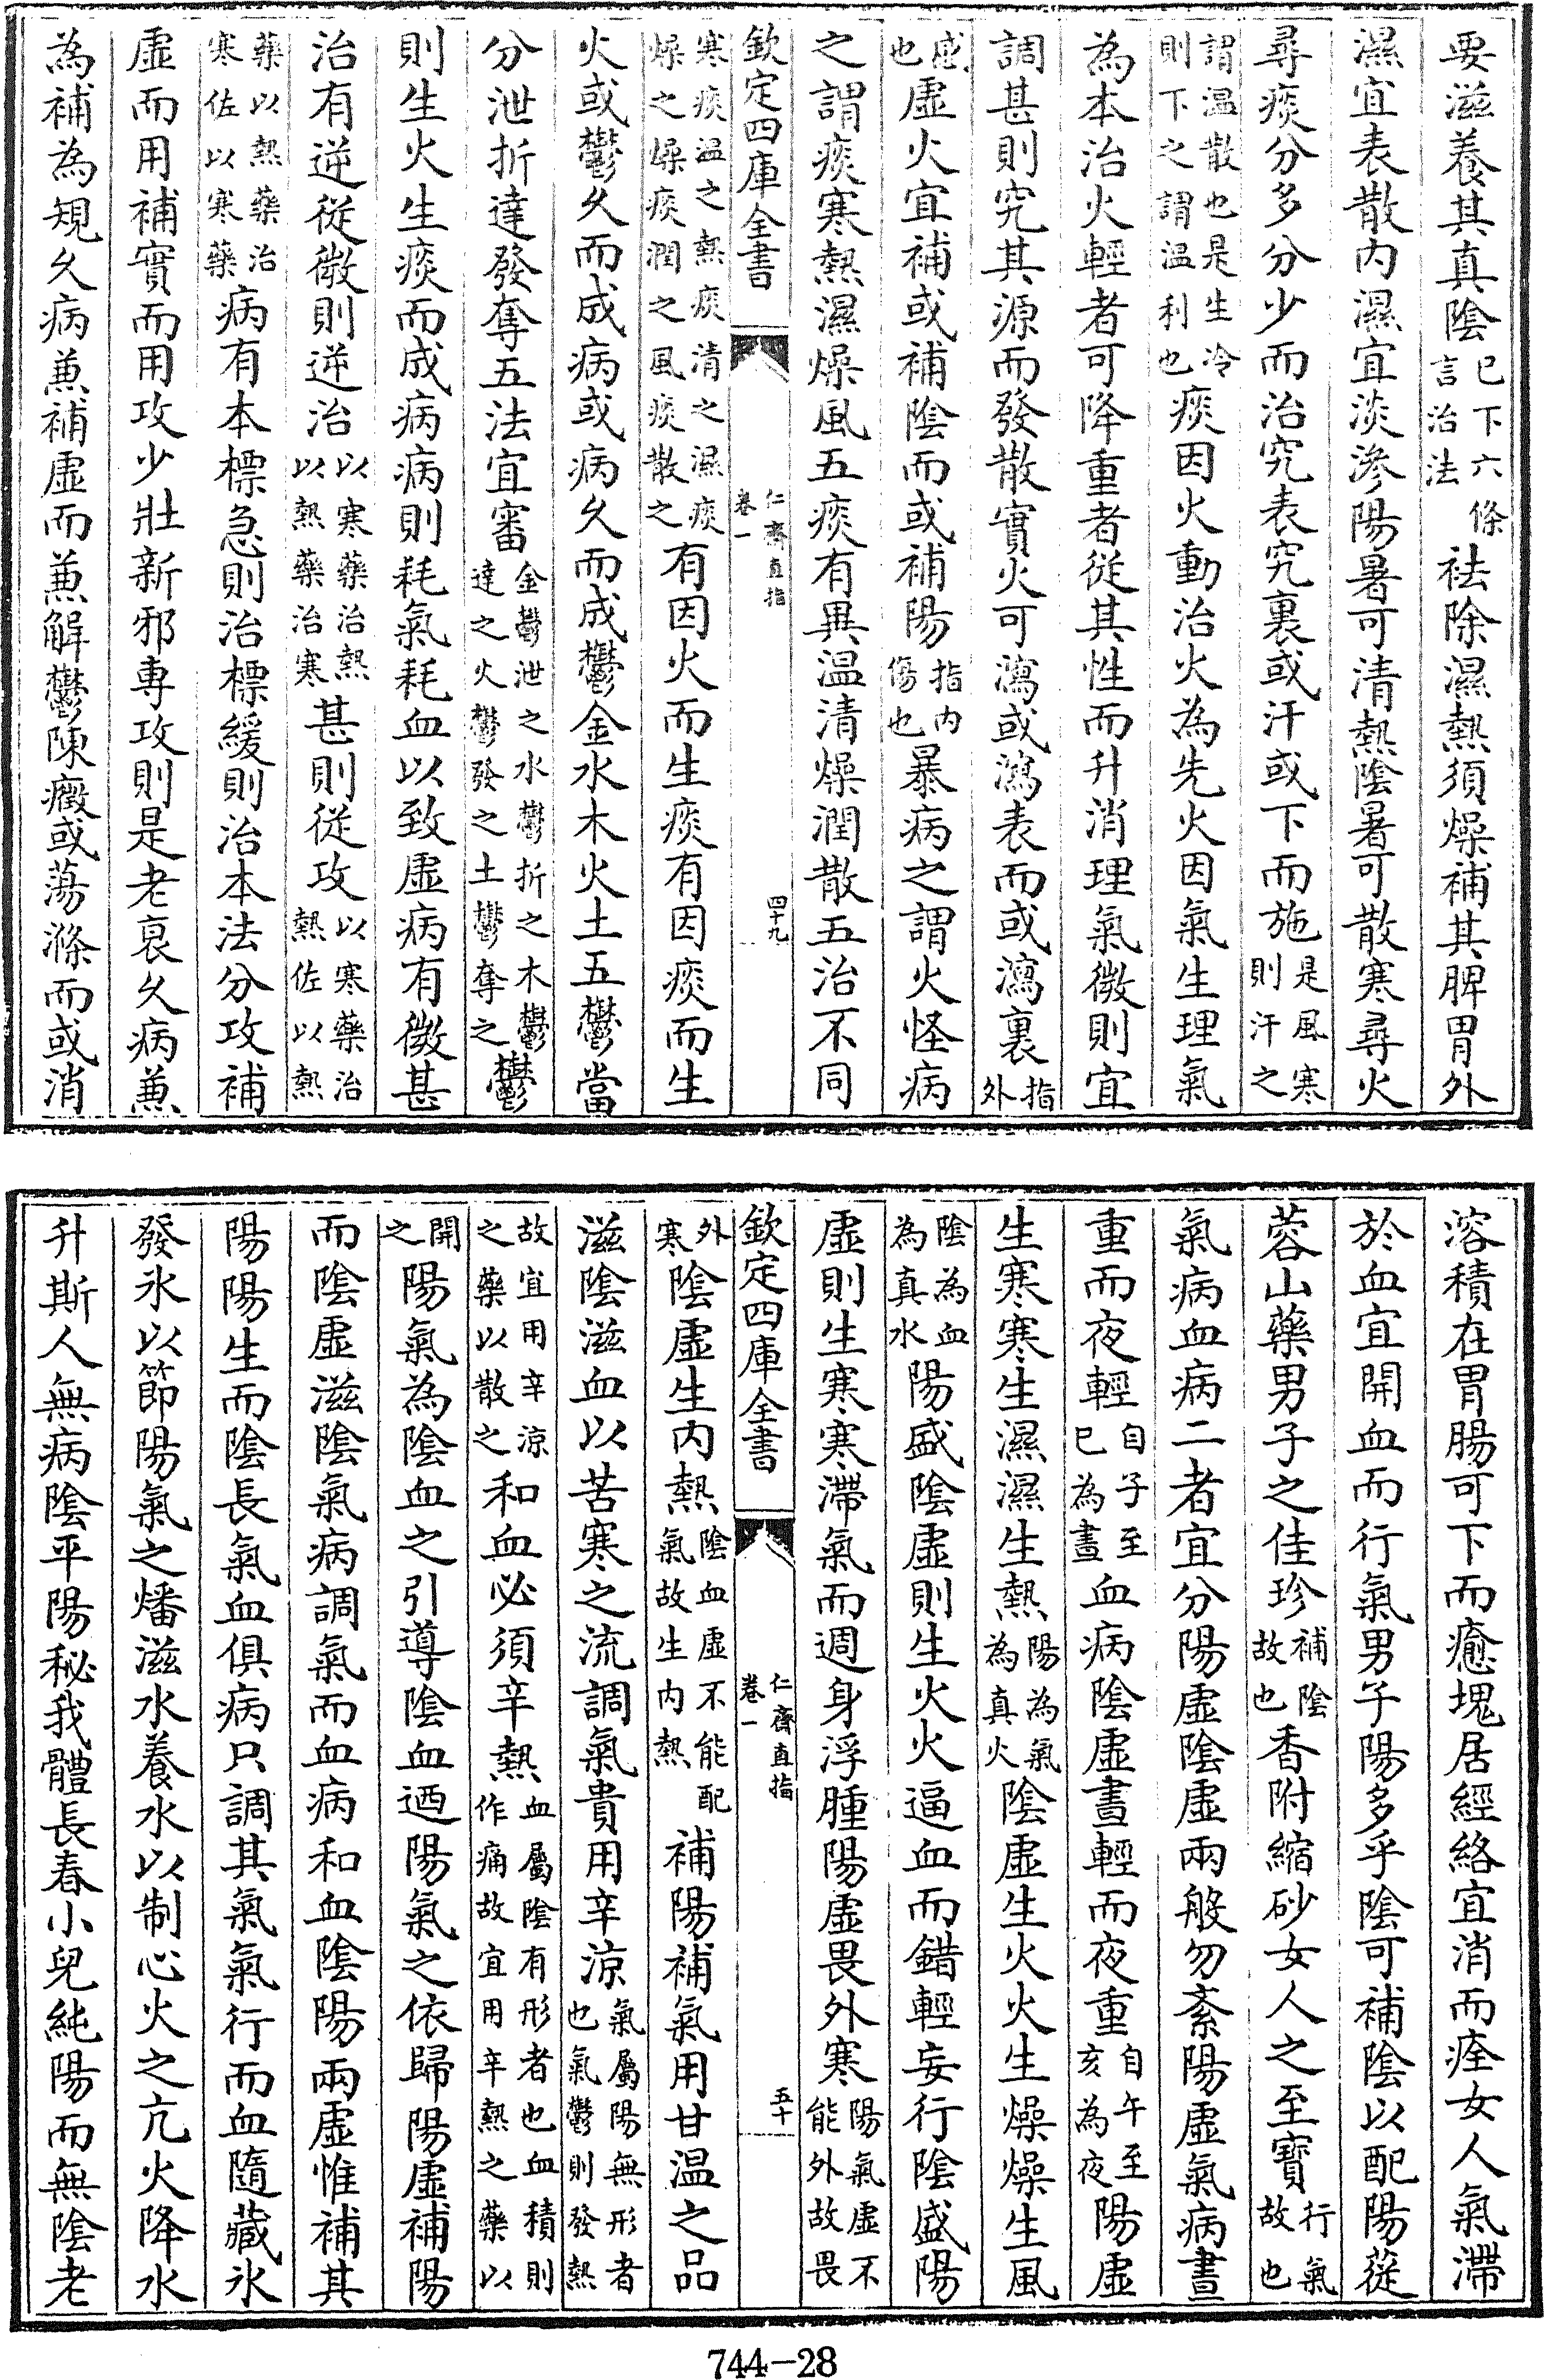 要滋養其真陰已下六條言治法祛除濕熱須燥補其脾胃外
濕宜表散内濕宜淡滲陽暑可清熱陰暑可散寒尋火
尋痰分多分少而治究表究裏或汗或下而施是風寒則汗之
謂温散也是生冷則下之謂温利也痰因火動治火為先火因氣生理氣
為本治火輕者可降重者從其性而升消理氣微則宜
調甚則究其源而發散實火可瀉或瀉表而或瀉裏指外
感也虛火宜補或補陰而或補陽指内傷也暴病之謂火怪病
之謂痰寒熱濕燥風五痰有異温清燥潤散五治不同
欽定四庫全書
仁齋直指
卷一
四十九
寒痰温之熱痰清之濕痰燥之燥痰潤之風痰散之有因火而生痰有因痰而生
火或鬱久而成病或病久而成鬱金水木火土五鬱當
分泄折達發奪五法宜審金鬱泄之水鬱折之木鬱達之火鬱發之土鬱奪之鬱
則生火生痰而成病病則耗氣耗血以致虛病有微甚
治有逆從微則逆治以寒藥治熱以熱藥治寒甚則從攻以寒藥治熱佐以熱
藥以熱藥治寒佐以寒藥病有本標急則治標緩則治本法分攻補
虛而用補實而用攻少壯新邪専攻則是老衰久病兼
為補為規久病兼補虛而兼解鬱陳癥或蕩滌而或消
溶積在胃腸可下而癒塊居經絡宜消而痊女人氣滯
於血宜開血而行氣男子陽多乎陰可補陰以配陽蓯
蓉山藥男子之佳珍補陰故也香附縮砂女人之至寶行氣故也
氣病血病二者宜分陽虛陰虛兩般勿紊陽虛氣病晝
重而夜輕自子至巳為晝血病陰虛晝輕而夜重自午至亥為夜陽虛
生寒寒生濕濕生熱陽為氣為真火陰虛生火火生燥燥生風
陰為血為真水陽盛陰虛則生火火逼血而錯輕妄行陰盛陽
虛則生寒寒滯氣而週身浮腫陽虛畏外寒陽氣虛不能外故畏
欽定四庫全書
仁齋直指
卷一
五十
外寒陰虛生内熱陰血虛不能配氣故生内熱補陽補氣用甘温之品
滋陰滋血以苦寒之流調氣貴用辛涼氣屬陽無形者也氣鬱則發熱
故宜用辛涼之藥以散之和血必須辛熱血屬陰有形者也血積則作痛故宜用辛熱之藥以
開之陽氣為陰血之引導陰血迺陽氣之依歸陽虛補陽
而陰虛滋陰氣病調氣而血病和血陰陽兩虛惟補其
陽陽生而陰長氣血俱病只調其氣氣行而血隨藏氷
發氷以節陽氣之燔滋水養水以制心火之亢火降水
升斯人無病陰平陽秘我體長春小兒純陽而無陰老
744-28